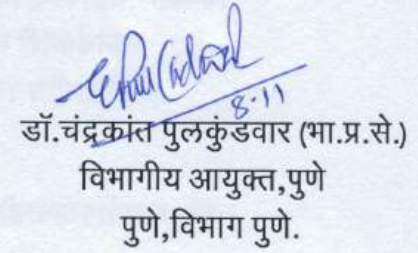 8.11
डॉ.चंद्रकांत पुलकुंडवार (भा.प्र.से.)
विभागीय आयुक्त,पुणे
पुणे,विभाग पुणे.